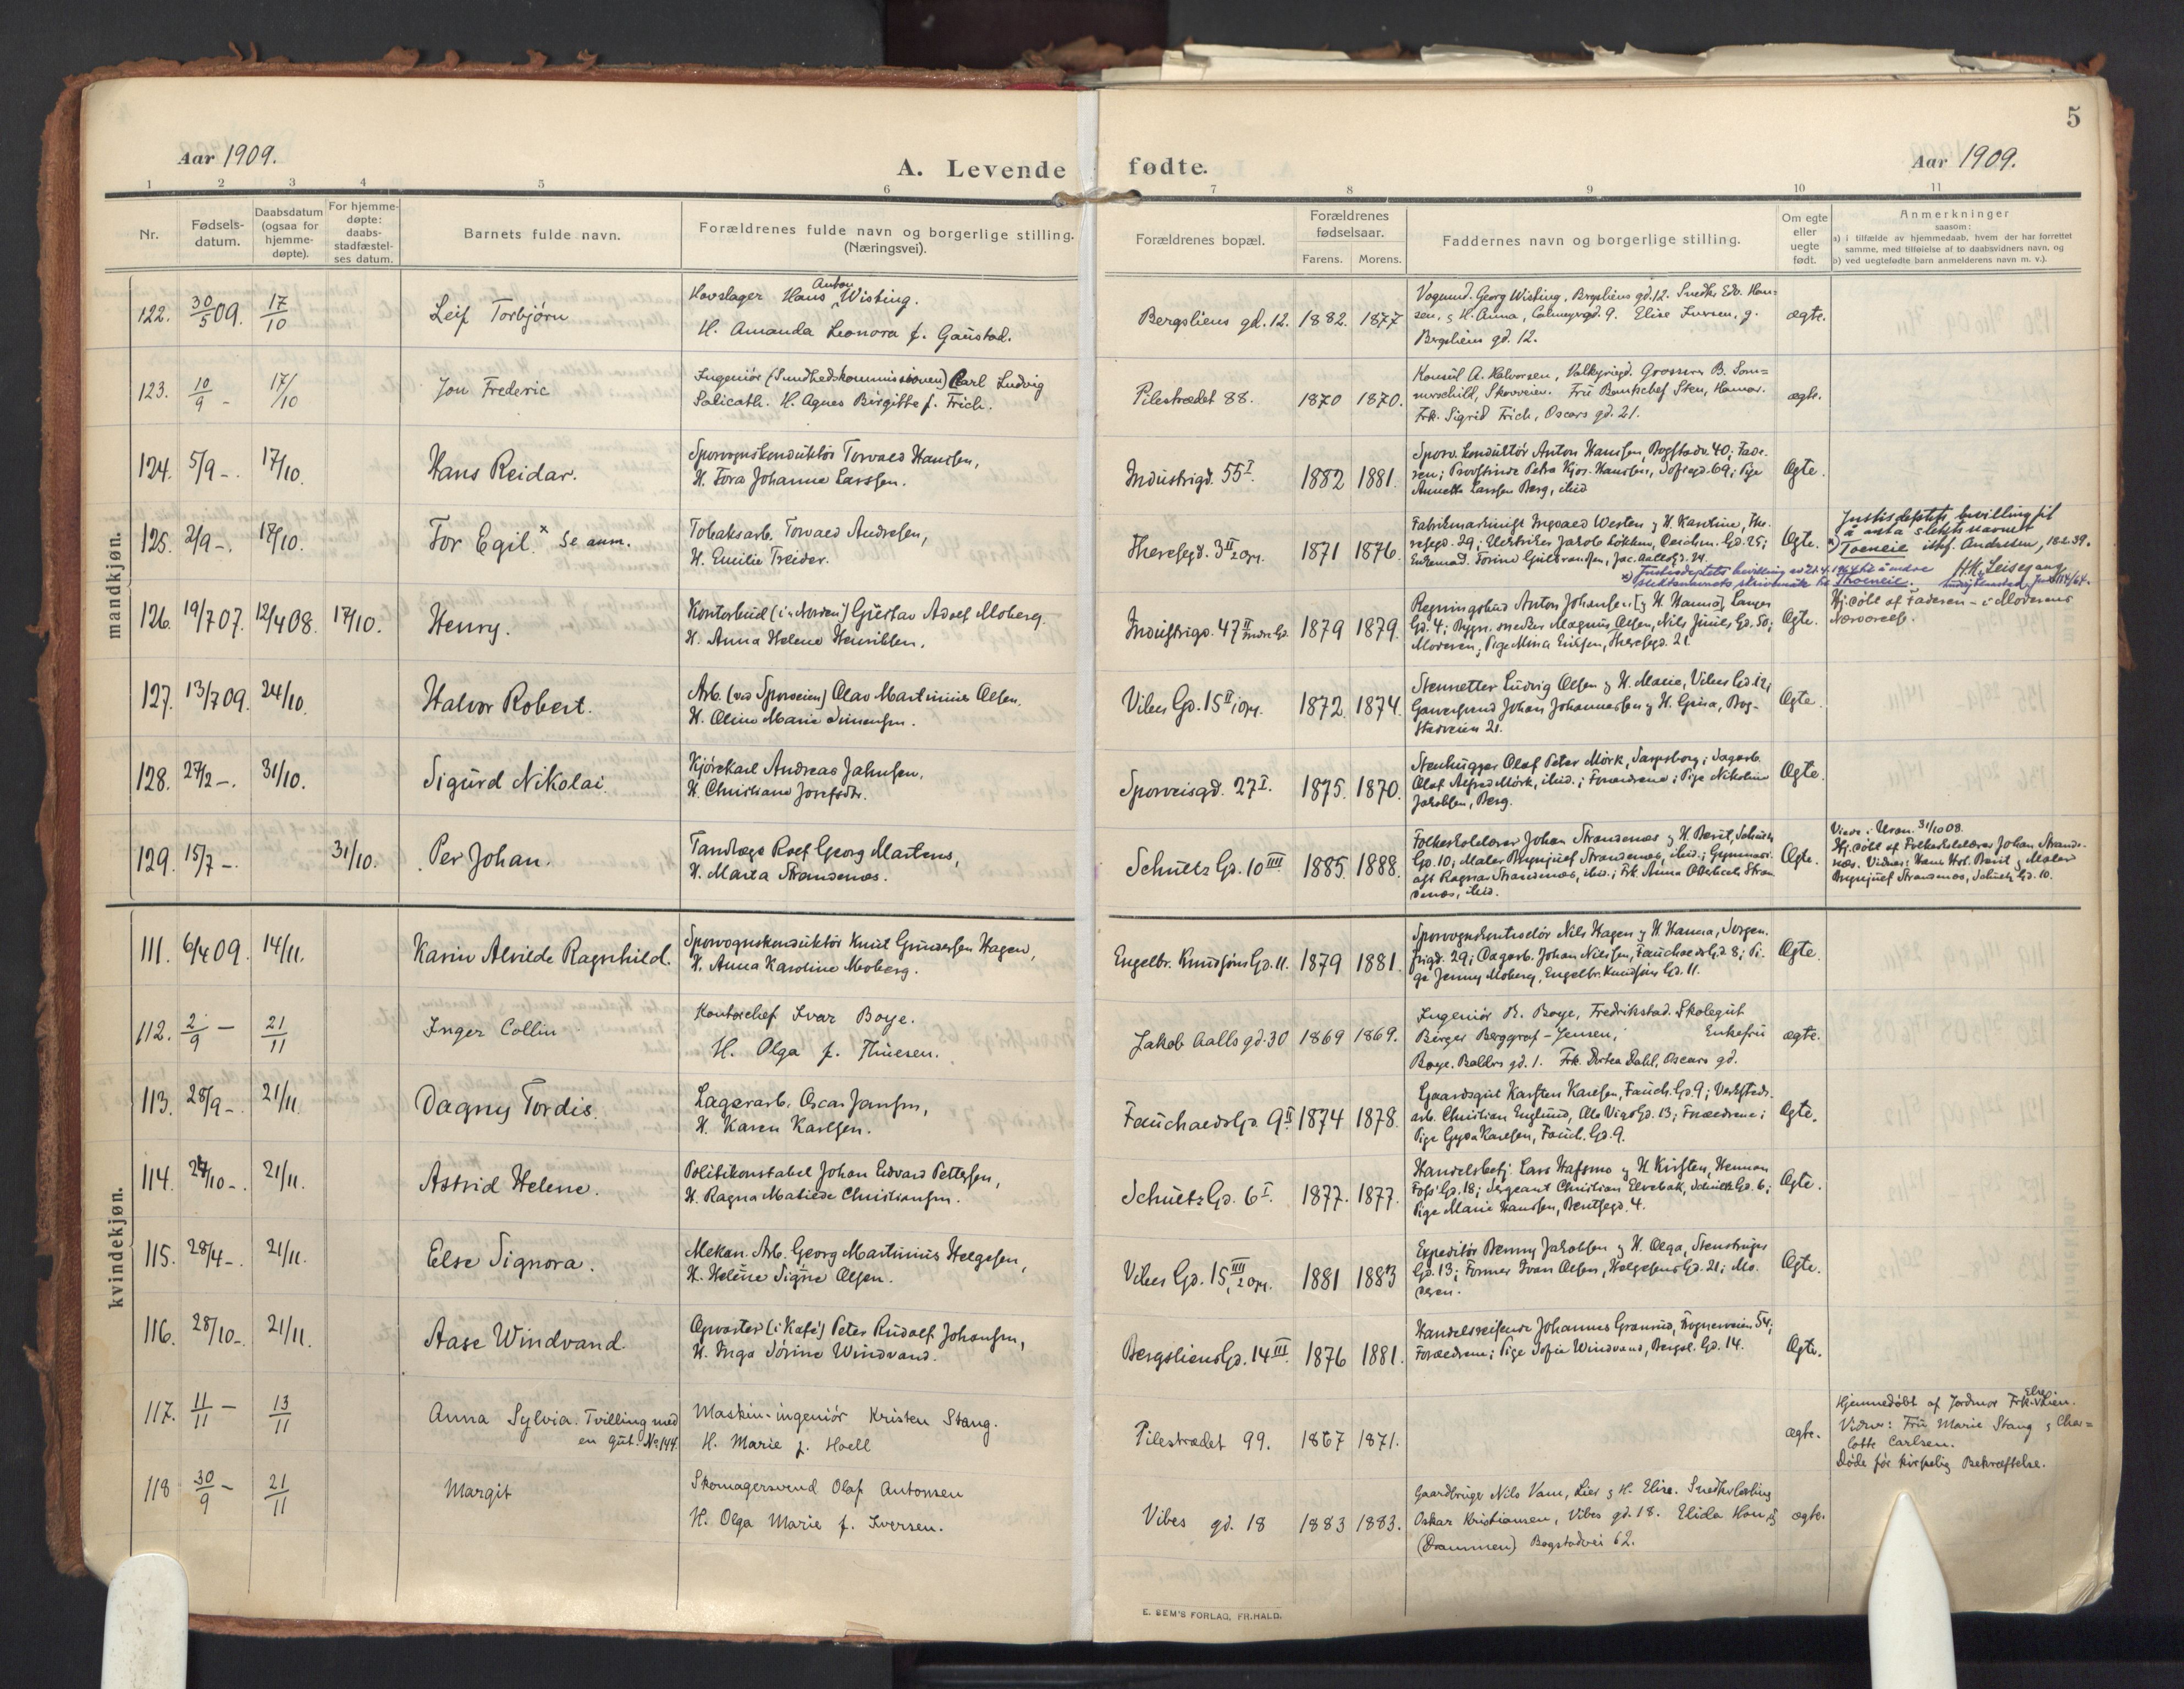 5
Aar 1909.
A. Levende fødte.
Aar 1909.
1 2 3 4 5 6 7 8 9 10 11
Nr.
Fødsels-
datum.
Daabsdatum
(ogsaa for
hjemme-
døpte).
For hjemme-
døpte:
daabs-
stadfæstel-
ses datum.
Barnets fulde navn.
Forældrenes fulde navn og borgerlige stilling.
(Næringsvei).
Forældrenes bopæl.
Forældrenes
fødselsaar.
Farens. Morens.
Faddernes navn og borgerlige stilling.
Om egte
eller
uegte
født.
Anmerkninger
saasom:
a) i tilfælde av hjemmedaab, hvem der har forrettet
samme, med tilføielse af to daabsvidners navn, og
b) ved uegtefødte barn anmelderens navn m. v.).
mandkjøn.
122. 30/5 09. 17/10 Leif Torbjørn
Hovslager Hans Anton Wisting.
H. Amanda Leonora f. Gaustad.
Bergsliens gd. 12. 1882. 1877
Vognmd. Georg Wisting, Bergsliens gd. 12. Snedker Edv. Han-
sen, & H. Anna, 9. Elise Iversen, g.
Bergsliens gd. 12.
ægte.
123. 10/9 - 17/10 Jon Frederic
Ingeniør (Sundhedskommissionen) Carl Ludvig
Salicath. H. Agnes Birgitte f. Frich.
Pilestrædet 88. 1870 1870.
Konsul A. Halvorsen, Valkyriegd. Grosserer B. Som-
merschild, Skovveien. Frü Sten, Hamar.
Frk. Sigrid Frich, Oscars gd. 21.
ægte.
124. 5/9 -. 17/10. Hans Reidar.
Sporvognskonduktör Torvald Hansen,
H. Tora Johanne Larssen.
Industrigd. 55 I. 1882 1881.
Sporv. konduktör Anton Hanssen, Bogstadv. 40; Fade-
ren; Petra Kjos-Hanssen, Sofiegd. 69; Pige
Annette Larssen Berg, ibid
Ægte.
125. 2/9 -. 17/10. Tor Egil. x Se anm.
Tobaksarb. Torvald Andresen,
H. Emilie Treider.
Theresegd. 3 II 2 opg. 1871 1876.
Fabrikmaskinist Ingvald Westen & H. Karoline, The-
resegd. 29; Elektriker Jakob Løkken, Deichm. Gd. 25;
Enkemad. Torine Gulbrandsen, Jac. Aalls Gd. 24.
Ægte.
Justisdeptets bevilling til
å anta slektsnavnet
x) Toeneie istf. Andresen, 18.2.39.
H.K. Leisegang
x) Justisdeptets bevilling av 21.4.1964 til å endre
slektsnavnets skrivemåte til Thoeneie.
126. 19/7 07. 12/4 08. 17/10. Henry.
Kontorbud (i "Norden") Gustav Adolf Moberg.
H. Anna Helene Henriksen.
Industrigd. 47 II 1879 1879.
Regningsbud Anton Johansen [& H. Hanna], Langes
Gd. 4; Bygn. snedker Magnus Olsen, Nils Juels Gd. 50;
Moderen; Pige Mina Eriksen, Theresegd. 21.
Ægte.
Hj. döbt af Faderen - i Moderens
Nærværelse.
127. 13/7 09. 24/10. Halvor Robert.
Arb. (ved Sporveien) Olav Martinius Olsen,
H. Oline Marie Simensen.
Vibes Gd. 15 II i opg. 1872. 1874.
Stensetter Ludvig Olsen & H. Marie, Vibes Gd. 12;
Garversvend Johan Johannessen & H. Grina, Bog-
stadveien 21.
Ægte.
128. 27/2 -. 31/10. Sigurd Nikolai
Kjörekarl Andreas Jahnsen,
H. Christiane Josefsdtr.
Sporveisgd. 27 I. 1875. 1870.
Stenhugger Olaf Peter Mörk, Sarpsborg; Sagarb.
Olaf Alfred Mörk, ibid.; Forældrene; Pige Nikoline
Jakobsen, Berg.
Ægte.
129. 15/7 -. 31/10. Per Johan.
Tandlæge Rolf Georg Martens,
H. Marta Strandenæs.
Schultz Gd. 10 IIII. 1885. 1888.
Folkeskolelærer Johan Strandenæs & H. Berit, Schultz
Gd. 10; Maler Brynjulf Strandenæs, ibid.; Gymnasi-
ast Ragnar Strandenæs, ibid.; Frk. Anna Stran-
denæs, ibid.
Ægte.
Viede i Uran. 31/10 08.
Hj. döbt af Folkeskolelærer Johan Strande-
næs. Vidner: Hans Hst. Berit & Maler
Brynjulf Strandenæs, Schultz Gd. 10.
kvindekjøn.
111. 6/4 09. 14/11. Karin Alvilde Ragnhild.
Sporvognskonduktör Knut Gundersen Hagen,
H. Anna Karoline Moberg.
Engelbr. Knudsöns Gd. 11. 1879 1881.
Sporvognskontrollör Nils Hagen & H. Hanna, Jorgen-
frigd. 29; Dagarb. Johan Nilsen, Fauchaldsgd. 8; Pi-
ge Jenny Moberg, Engelbr. Knudsöns Gd. 11.
Ægte.
112. 2/9 - 21/11 Inger Collin
Kontorchef Ivar Boye.
H. Olga f. Thuesen.
Jakob Aalls gd. 30 1869 1869.
Ingeniör Th. Boye, Fredrikstad. Skolegut
Birger Berggraf-Jensen; Enkefrü
Boye, Balders gd. 1. Frk. Dortea Dahl, Oscars gd.
ægte.
113. 28/9 -. 21/11. Dagny Tordis.
Lagerarb. Oscar Jansen,
H. Karen Karlsen.
Fauchaldsgd. 9 II 1874 1878.
Gaardsgut Karsten Karlsen, Fauch. Gd. 9; Verksteds-
arb. Christian Englund, Ole Vigs Gd. 13; Forældrene;
Pige Gyda Karlsen, Fauch. Gd. 9.
Ægte.
114. 24/10 -. 21/11. Astrid Helene.
Politikonstabel Johan Edvard Pettersen,
H. Ragna Matilde Christiansen.
Schultz Gd. 6 I. 1877. 1877.
Handelsbetj. Lars Hafsmo & H. Kirsten, Herman
Foss' Gd. 18; Sergeant Christian Elvebak, Schultz Gd. 6;
Pige Marie Hanssen, Bentsegd. 4.
Ægte.
115. 28/4 -. 21/11. Else Signora.
Mekan. Arb. Georg Martinius Helgesen,
H. Helene Signe Olsen.
Vibes Gd. 15 IIII, 2 opg. 1881 1883
Expeditör Benny Jakobsen & H. Olga, Stensbergs
Gd. 13; Former Ivan Olsen, Helgesens Gd. 21; Mo-
deren.
Ægte.
116. 28/10 -. 21/11. Aase Windvand.
Opvarter (i Kafé) Peter Rudolf Johansen,
H. Inga Sörine Windvand.
Bergsliens Gd. 14 III. 1876 1881.
Handelsreisende Johannes Granrud, Hegneveien 54;
Forældrene; Pige Sofie Windvand, Bergsl. Gd. 14.
Ægte.
117. 11/11 - 13/11 Anna Sylvia. Tvilling med
en gut. No 144.
Maskin-ingeniör Kristen Stang.
H. Marie f. Hoell
Pilestrædet 99. 1867 1871.
ægte.
Hjemmedöbt af Jordmor Frk. Else Lien.
Vidner: Frü Marie Stang & Char-
lotte Carlsen.
Döde för kirkelig Bekræftelse.
118 30/9 - 21/11 Margit
Skomagersvend Olaf Antonsen
H. Olga Marie f. Iversen.
Vibes gd. 18 1883 1883.
Gaardbruger Nils Vam, Lier & H. Elise. Snedkerlærling
Oskar Kristiansen, Vibes gd. 18. Elida
(Drammen) Bogstadvei 62.
ægte.
E. SEM'S FORLAG, FR.HALD.